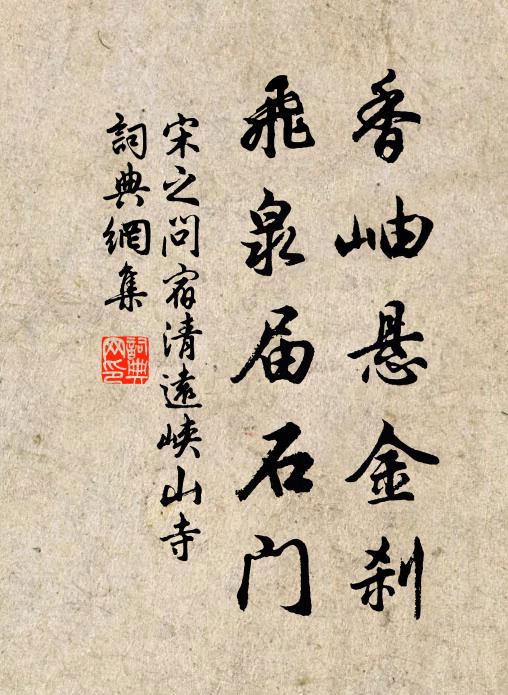 香岫悬金刹
飛泉届石门
宋之问宿清遠峡山寺
詞典網集
詞典網印